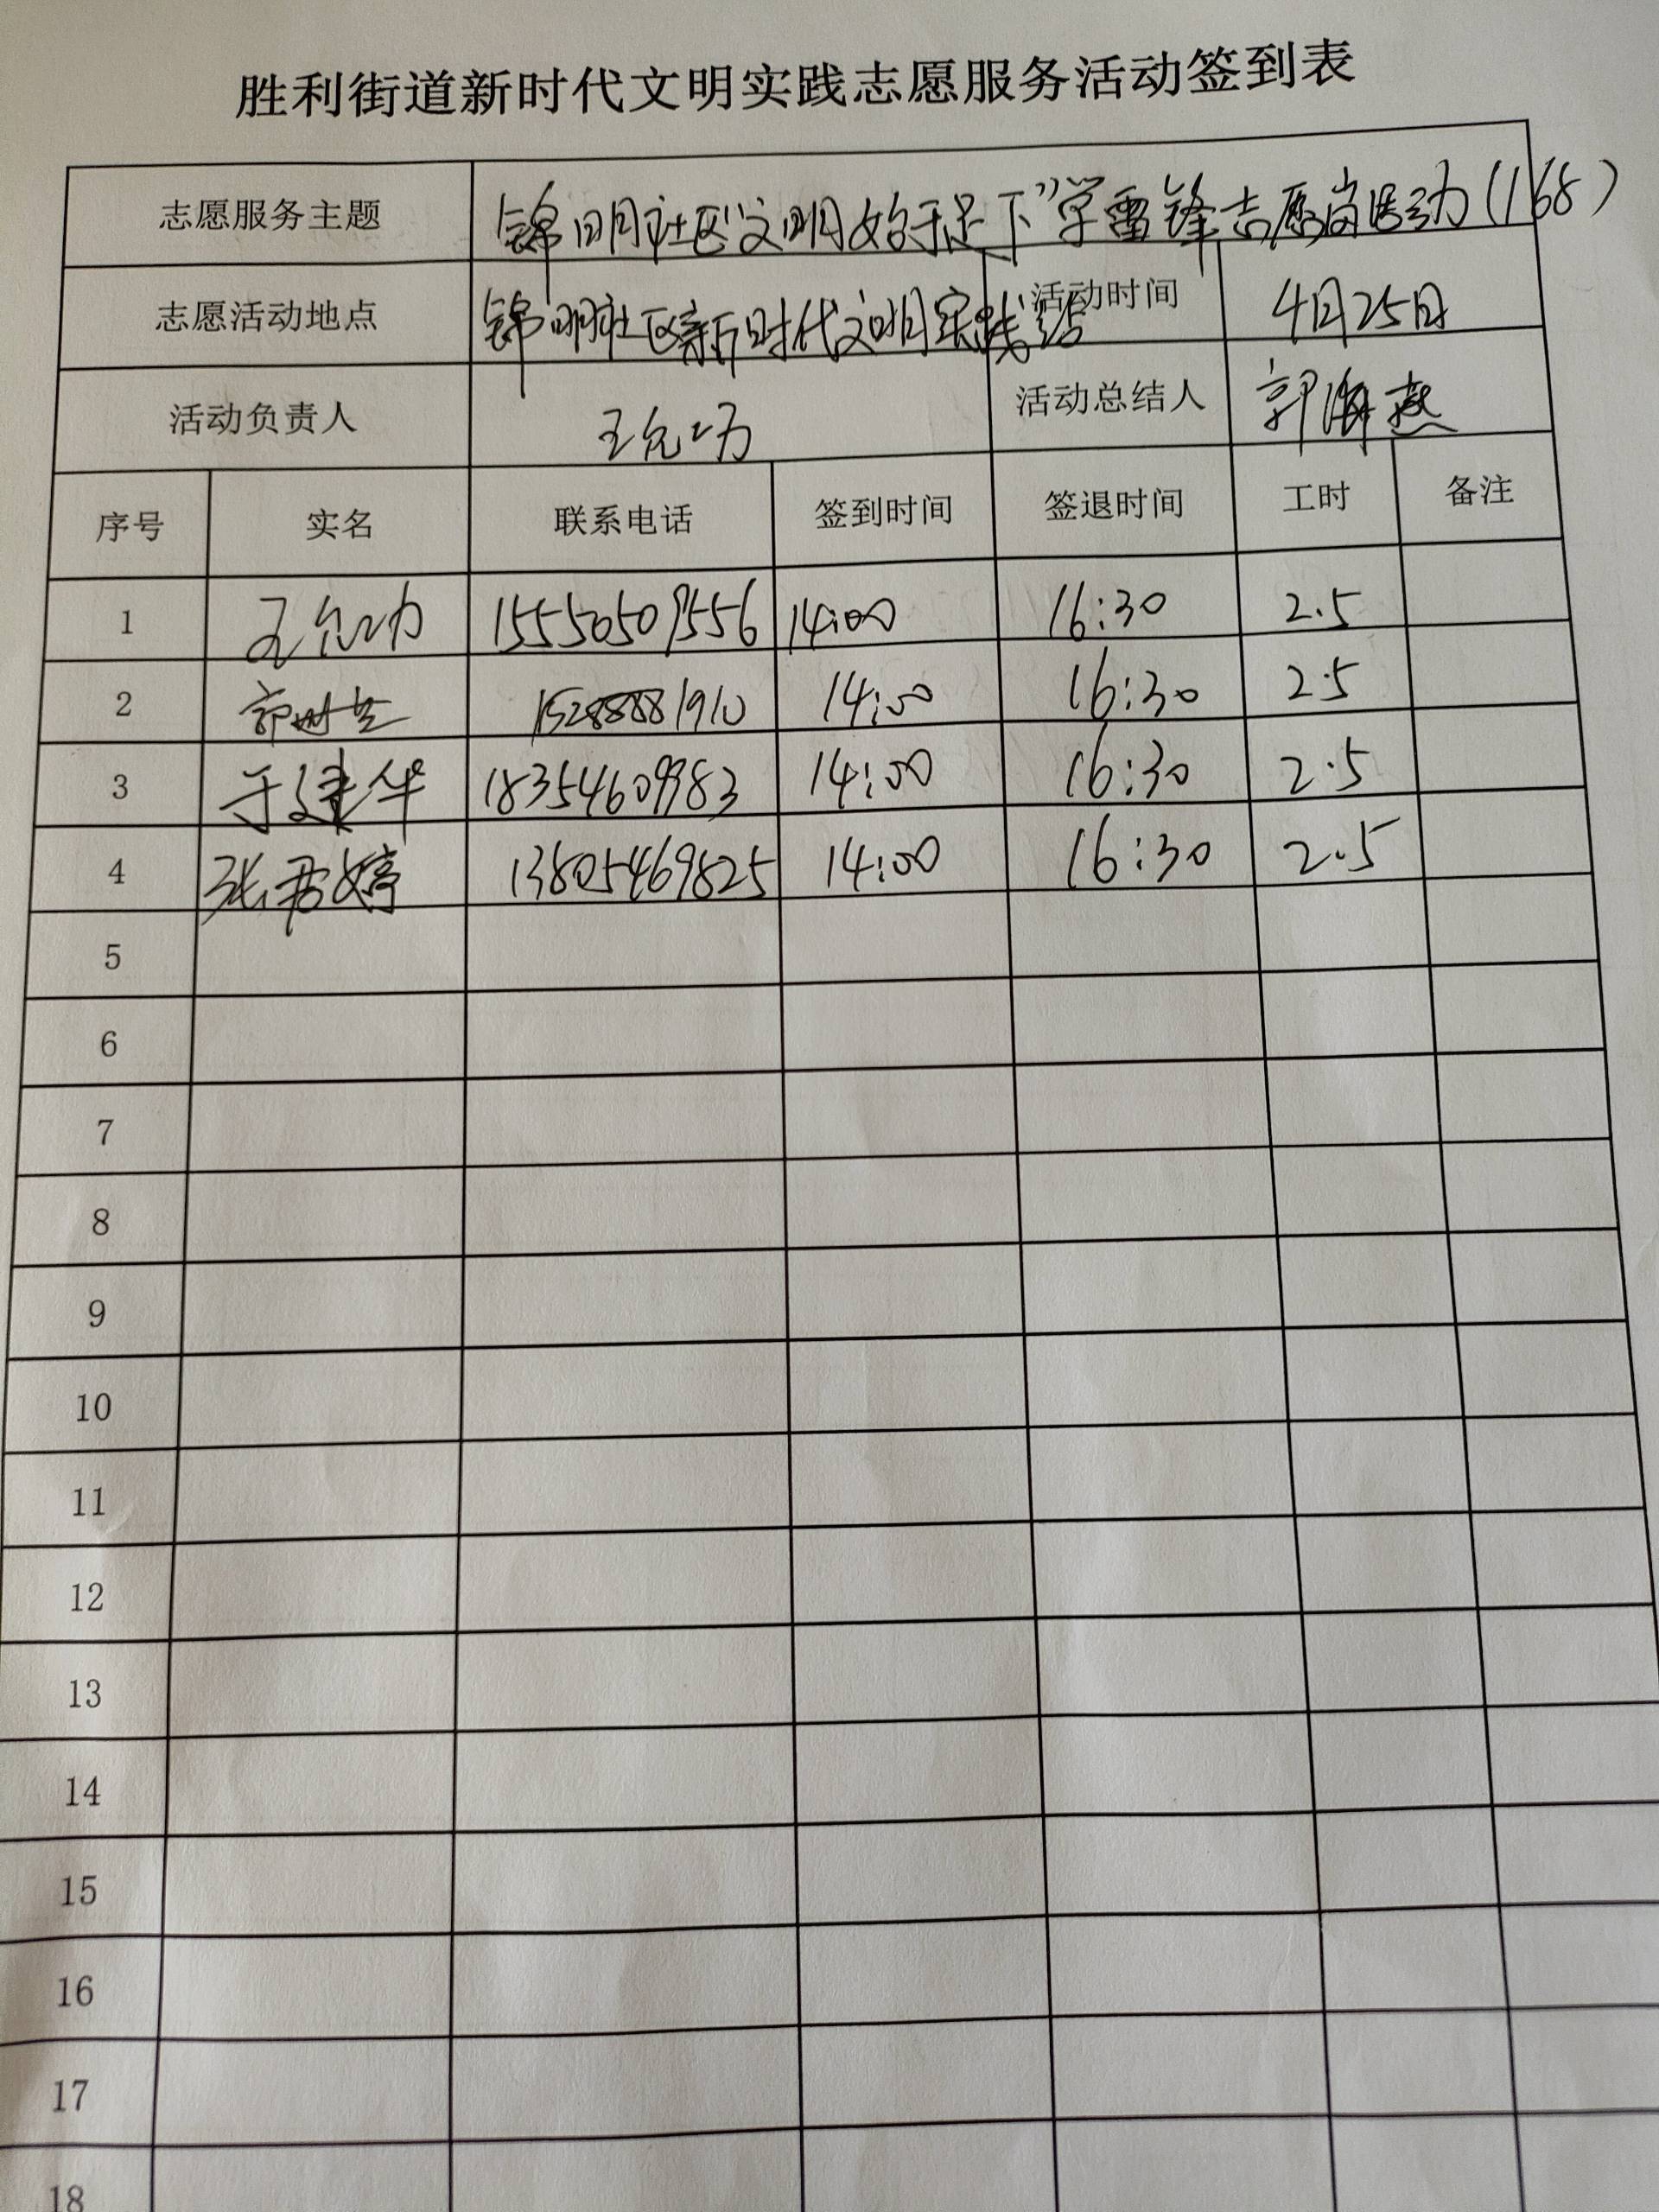 胜利街道新时代文明实践志愿服务活动签到表
志愿服务主题 锦明社区“文明始于足下”学雷锋志愿岗活动(168)
志愿活动地点 锦明社区新时代文明实践站 活动时间 4月25日
活动负责人 王允功 活动总结人 郭海燕
序号 实名 联系电话 签到时间 签退时间 工时 备注
1 王允功 15550509556 14:00 16:30 2.5
2 15288881910 14:00 16:30 2.5
3 于建华 18354609983 14:00 16:30 2.5
4 张君婷 13805469825 14:00 16:30 2.5
5
6
7
8
9
10
11
12
13
14
15
16
17
18